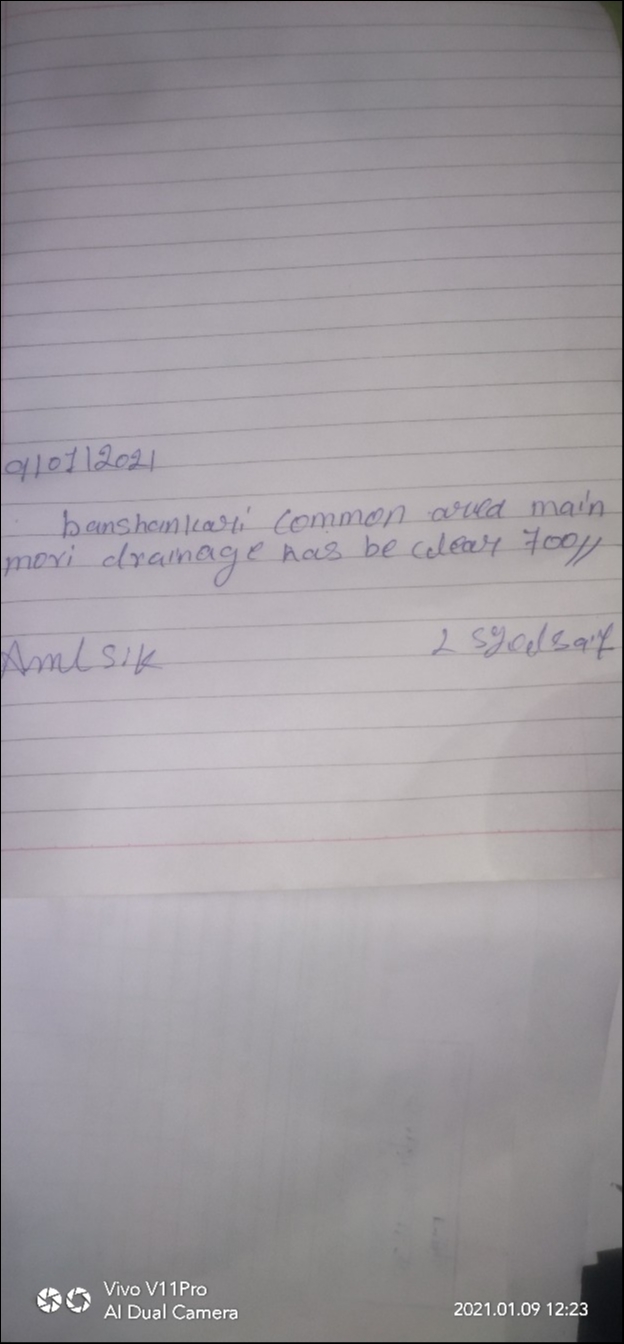 9/01/2021
banshankari common area main
mori drainage has be clear 700//
Aml sik L syed saif
Vivo V11Pro
AI Dual Camera
2021.01.09 12:23